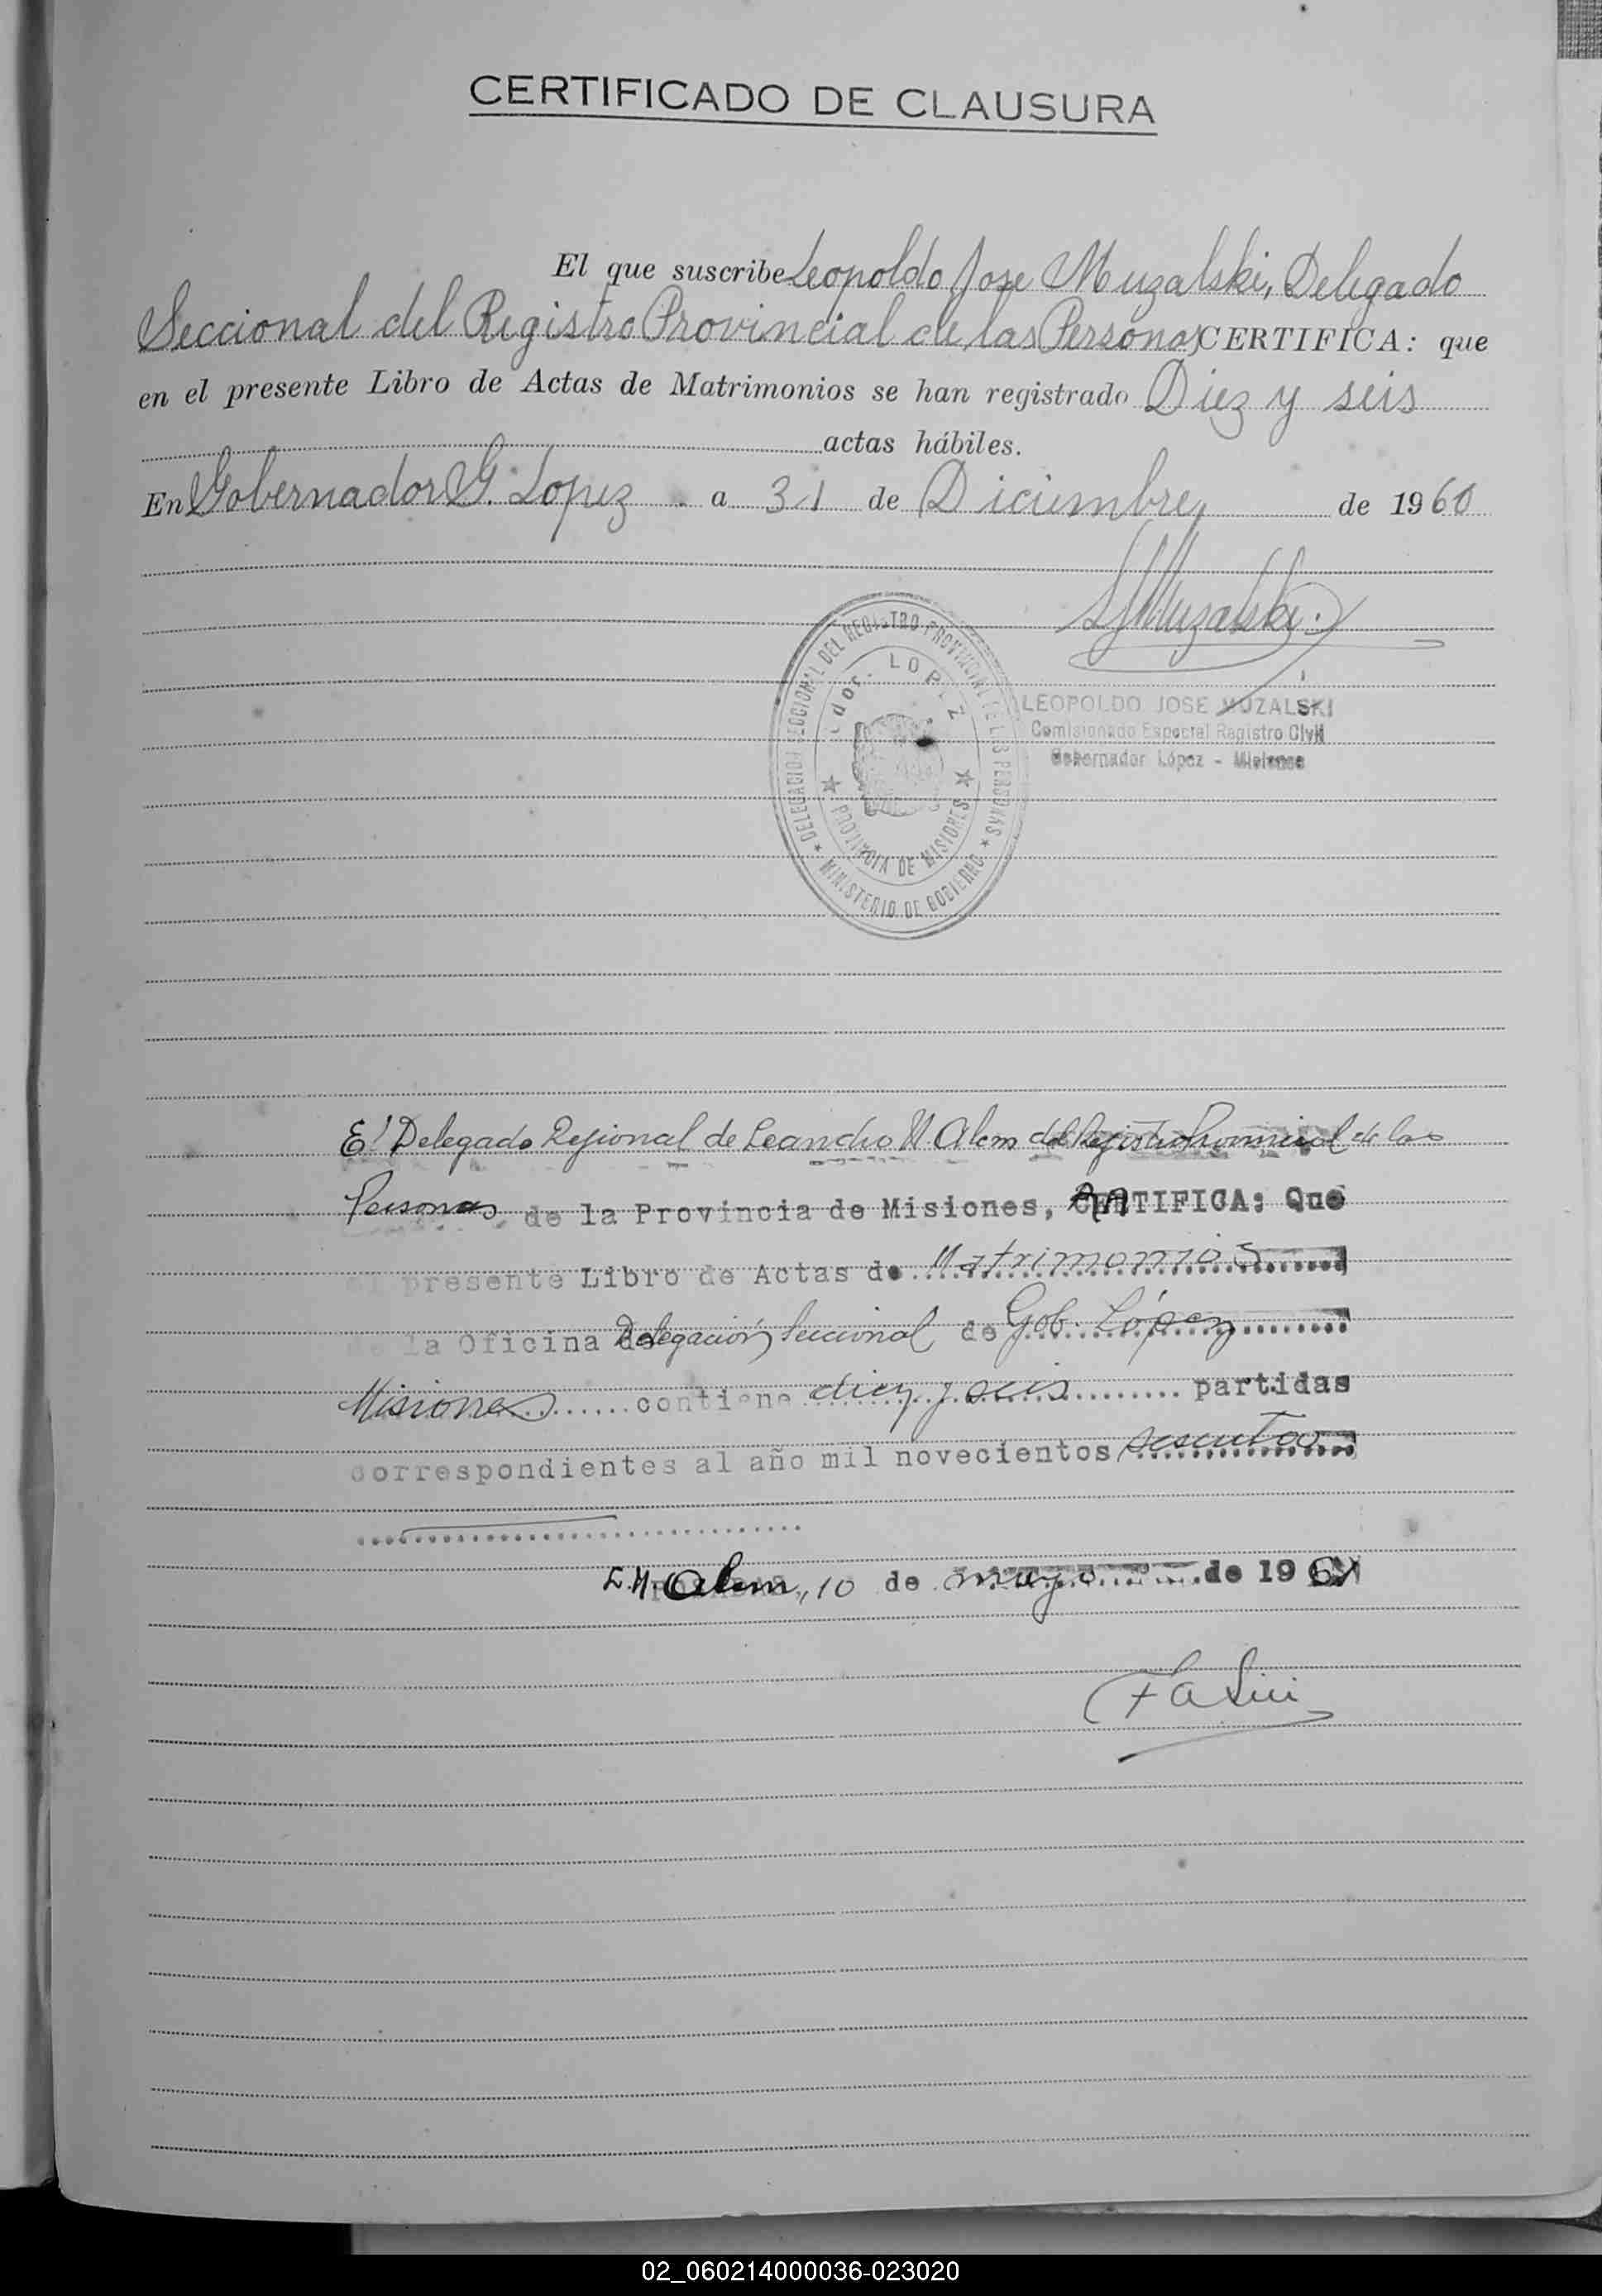 CERTIFICADO DE CLAUSURA
El que suscribe Leopoldo Jose Muzalski, Delegado
Seccional del Registro Provincial de las Personas CERTIFICA: que
en el presente Libro de Actas de Matrimonios se han registrado Diez y seis
actas hábiles.
En Gobernador G. Lopez a 31 de Diciembre, de 1960
LJMuzalski.
DELEGACION SECCIONAL DEL REGISTRO PROVINCIAL DE LAS PERSONAS
Gdor. LOPEZ
PROVINCIA DE MISIONES
MINISTERIO DE GOBIERNO
LEOPOLDO JOSE MUZALSKI
Comisionado Especial Registro Civil
Gobernador López - Misiones
El Delegado Regional de Leandro N. Alem del Registro Provincial de las
Personas de la Provincia de Misiones, CERTIFICA: Que
el presente Libro de Actas de Matrimonios
de la Oficina Delegación Seccional de Gob. López
Misiones contiene diez y seis partidas
correspondientes al año mil novecientos sesenta
L.N. Alem, 10 de mayo de 1961
02_060214000036-023020